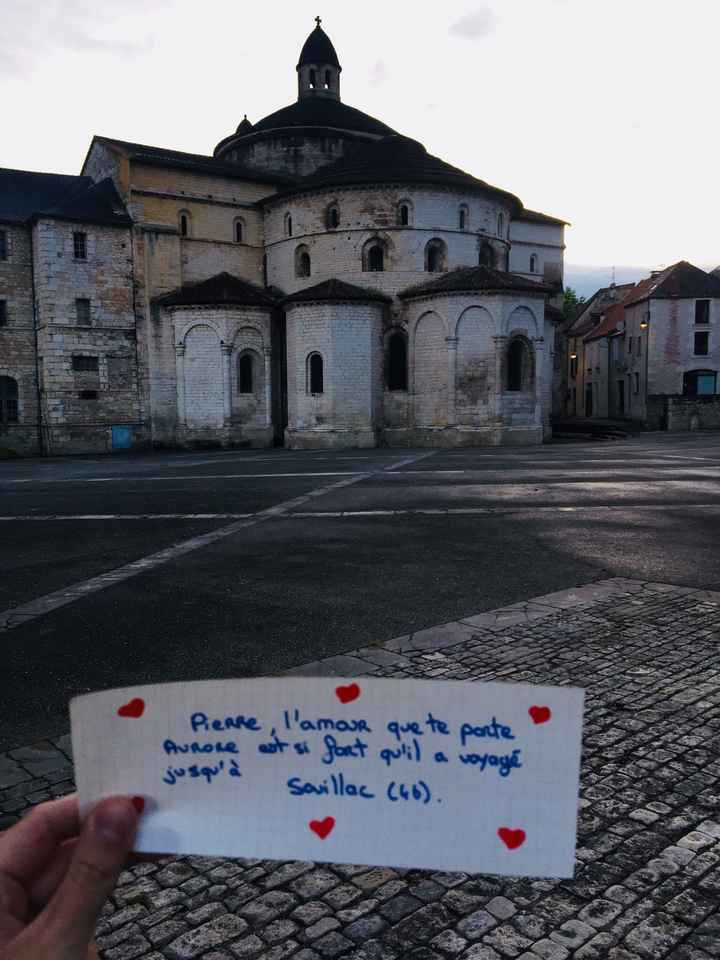 Pierre, l'amour que te porte
Aurore est si fort qu'il a voyagé
jusqu'à Souillac (46).